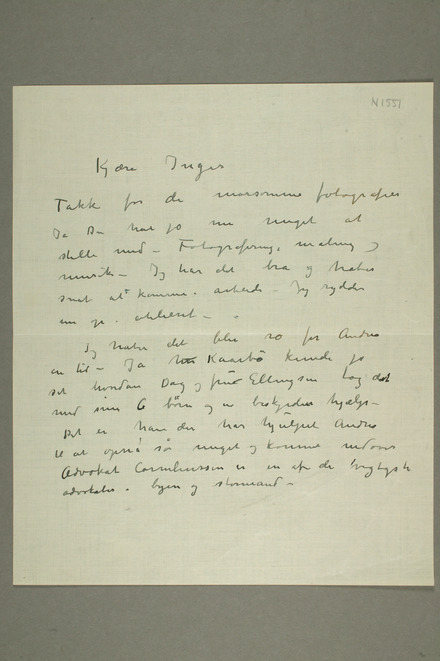 N 1551
Kjære Inger
Takk for de morsomme fotografier
Ja Du har jo nu meget at
stelle med – Fotografering, maling og
musik – Jeg har det bra og haaber
snart at komme i arbeide – Jeg rydder
um i atelieret –
Jeg haaber det blir ro for Andrea
en tid – Ja Kaarbø kunde jo
set hvordan Dag og frue Ellingsen tog det
med sine 6 børn og en beskjeden hjælp –
Det er han der har hjulpet Andrea
til at opnå så meget og komme
Advokat Corneliussen er en af de dygtigste
advokater i byen og stormand –